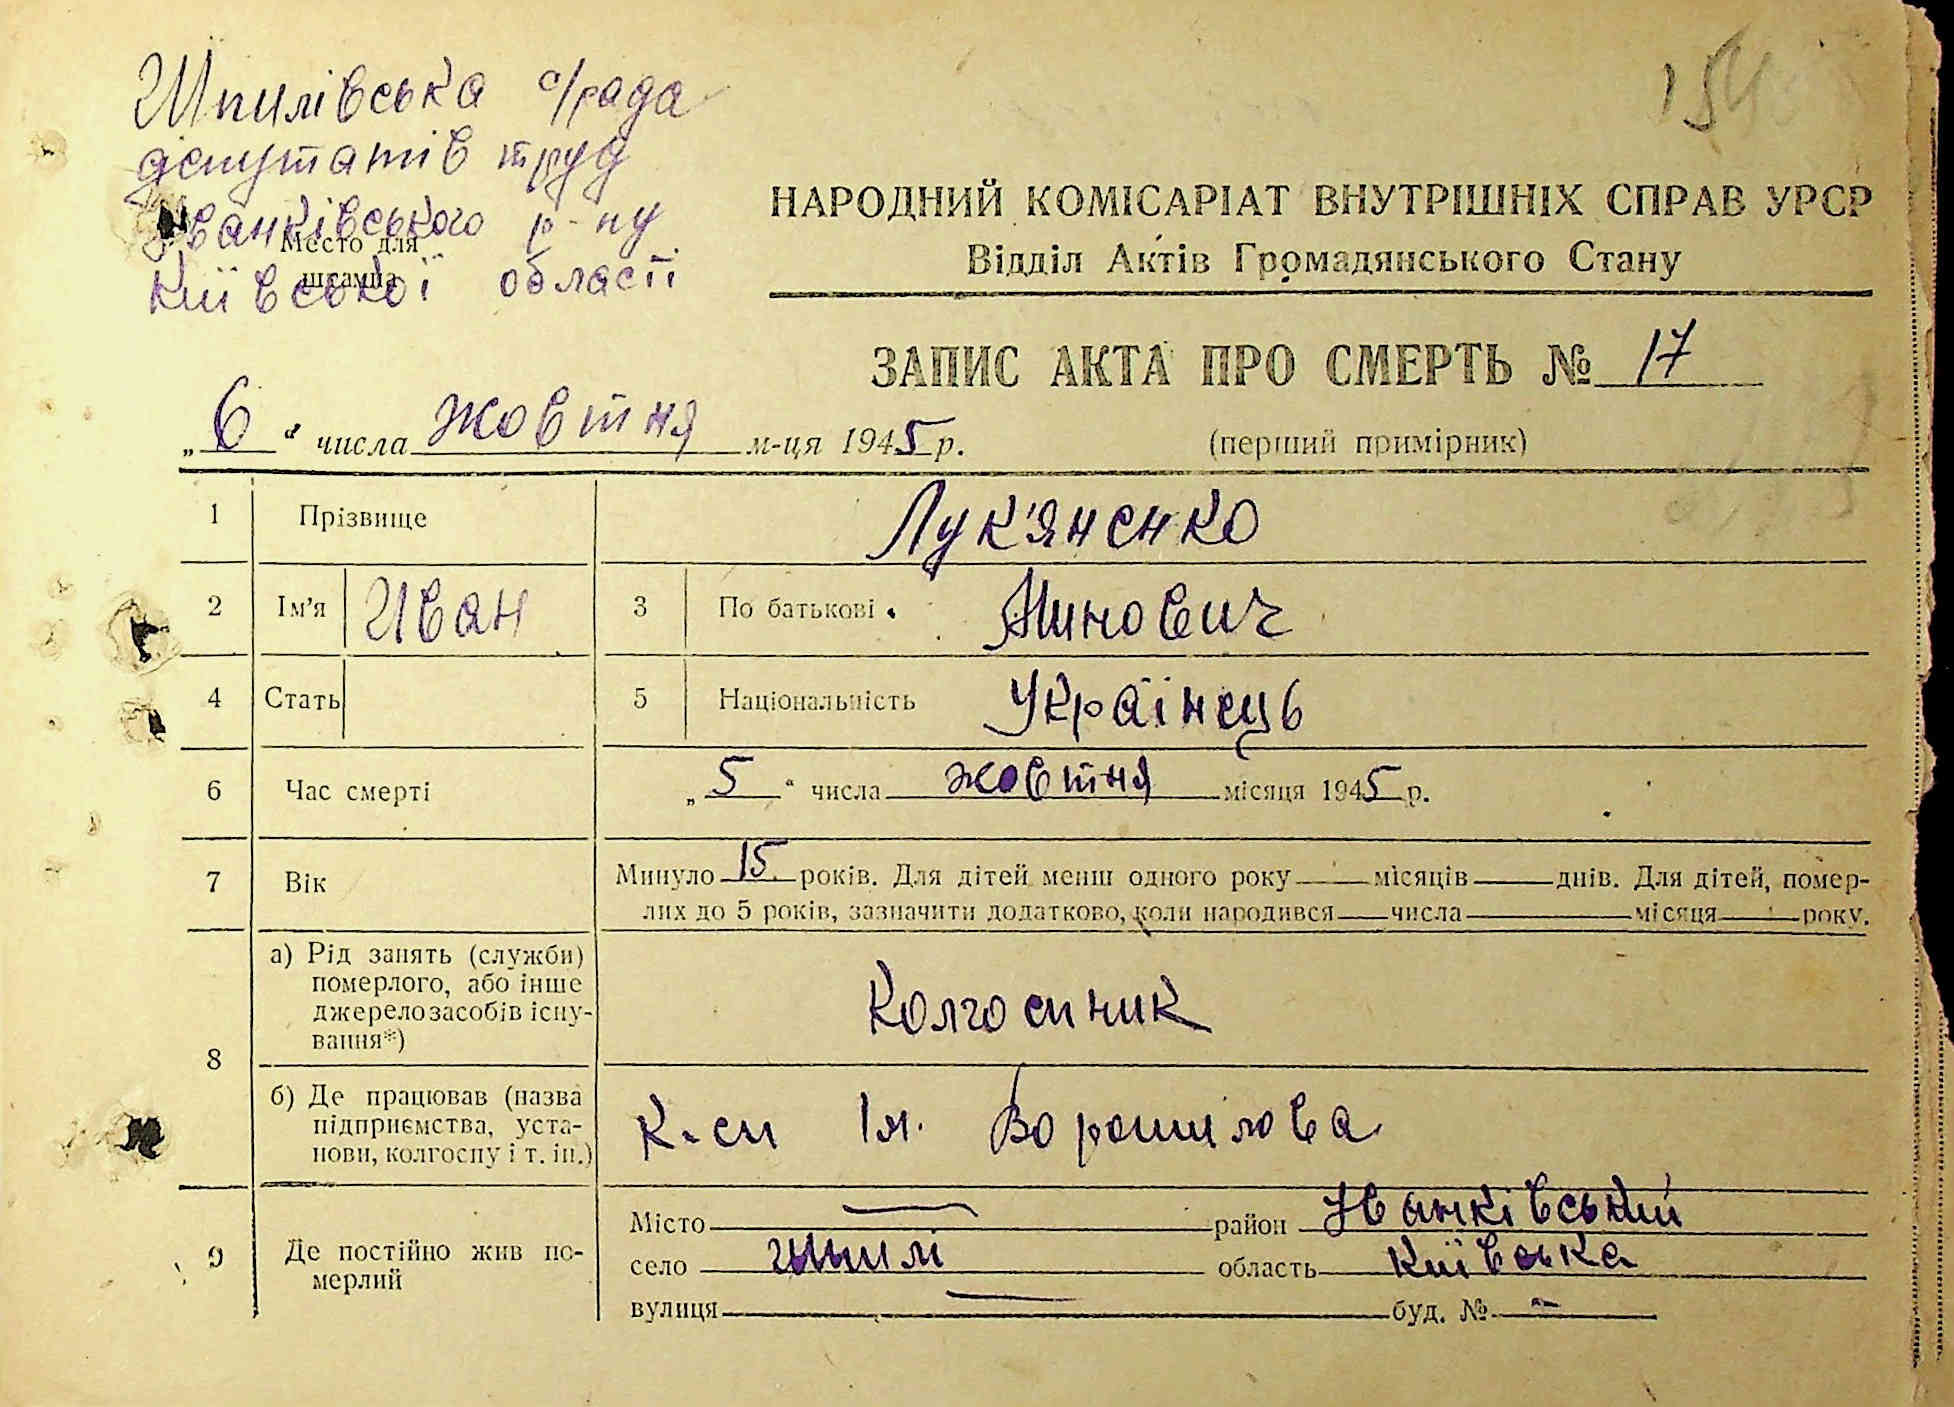 Шпилівська с/рада
депутатів труд
Іванківського р-ну
Київської області
Место для
штампа
154
НАРОДНИЙ КОМІСАРІАТ ВНУТРІШНІХ СПРАВ УРСР
Відділ Актів Громадянського Стану
ЗАПИС АКТА ПРО СМЕРТЬ № 17
„6“ числа жовтня м-ця 1945 р.
(перший примірник)
1 Прізвище Лук'яненко
2 Ім'я Иван 3 По батькові Минович
4 Стать 5 Національність Українець
6 Час смерті „5“ числа жовтня місяця 1945 р.
7 Вік Минуло 15 років. Для дітей менш одного року місяців днів. Для дітей, помер-
лих до 5 років, зазначити додатково, коли народився числа місяця року.
8 а) Рід занять (служби)
померлого, або інше
джерело засобів існу-
вання*)
Колгоспник
б) Де працював (назва
підприємства, уста-
нови, колгоспу і т. ін.)
К-сп Ім. Ворошилова
9 Де постійно жив по-
мерлий
Місто — район Іванківський
село Шпилі область Київська
вулиця — буд. № -